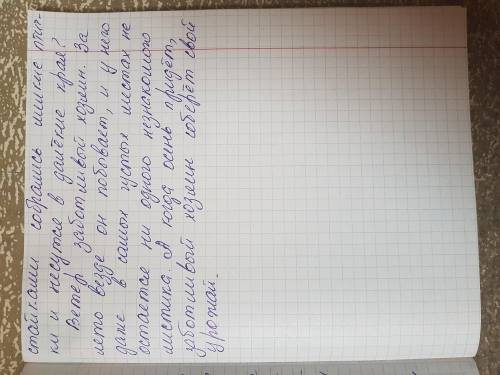 стайками собрались шикие птич-
ки и несутся в далёкие края?
Ветер заботливый хозяин. За
лето везде он побовает, и у него
даже в самых густых местах не
остается ни одного незнакомого
листика. А когда осень придёт,
зоботливый хозяин соберёт свой
урожай.